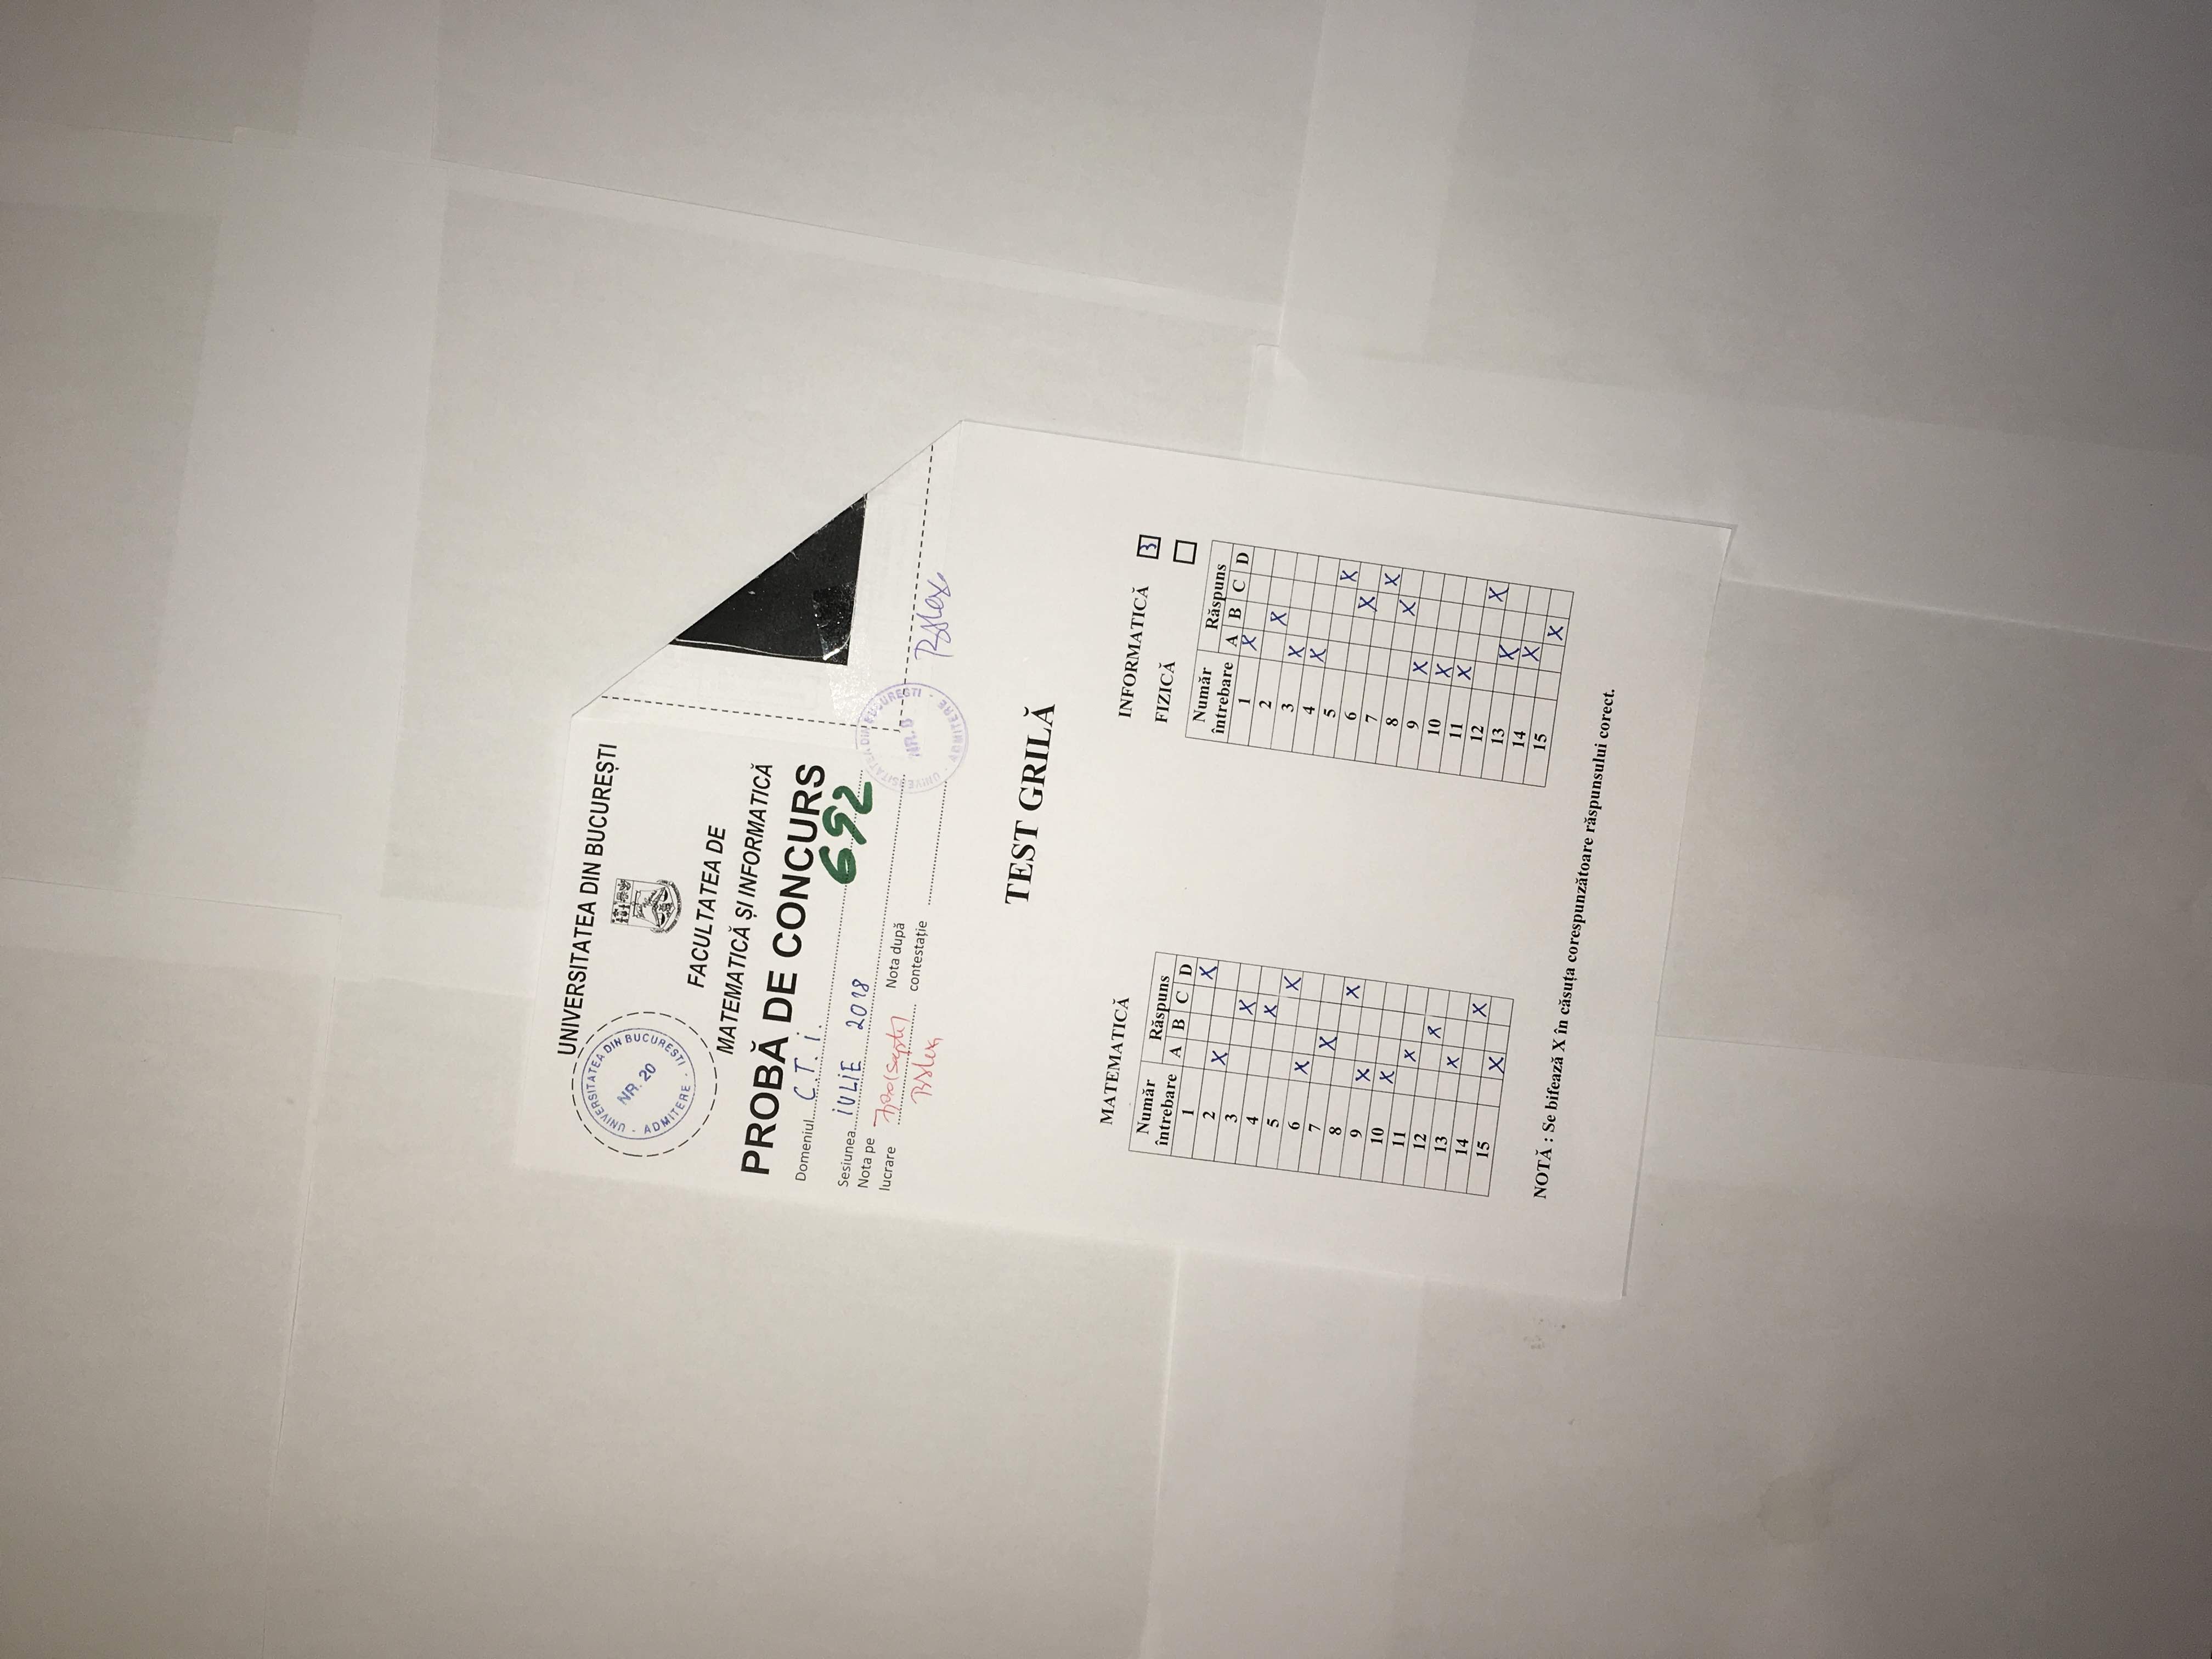 UNIVERSITATEA DIN BUCUREȘTI
· UNIVERSITATEA DIN BUCUREȘTI · ADMITERE
NR. 20
FACULTATEA DE
MATEMATICĂ ȘI INFORMATICĂ
PROBĂ DE CONCURS
Domeniul C.T.i.
692
Sesiunea iULiE 2018
Nota pe lucrare 7,00 (șapte)
Nota după contestație
UNIVERSITATEA DIN BUCUREȘTI · ADMITERE ·
NR. 6
TEST GRILĂ
MATEMATICĂ
Număr întrebare Răspuns
A B C D
1 X
2 X
3 X
4 X
5 X
6 X
7 X
8 X
9 X
10 X
11 X
12 X
13 X
14 X
15 X
INFORMATICĂ 3
FIZICĂ
Număr întrebare Răspuns
A B C D
1 X
2 X
3 X
4 X
5 X
6 X
7 X
8 X
9 X
10 X
11 X
12 X
13 X
14 X
15 X
NOTĂ : Se bifează X în căsuța corespunzătoare răspunsului corect.